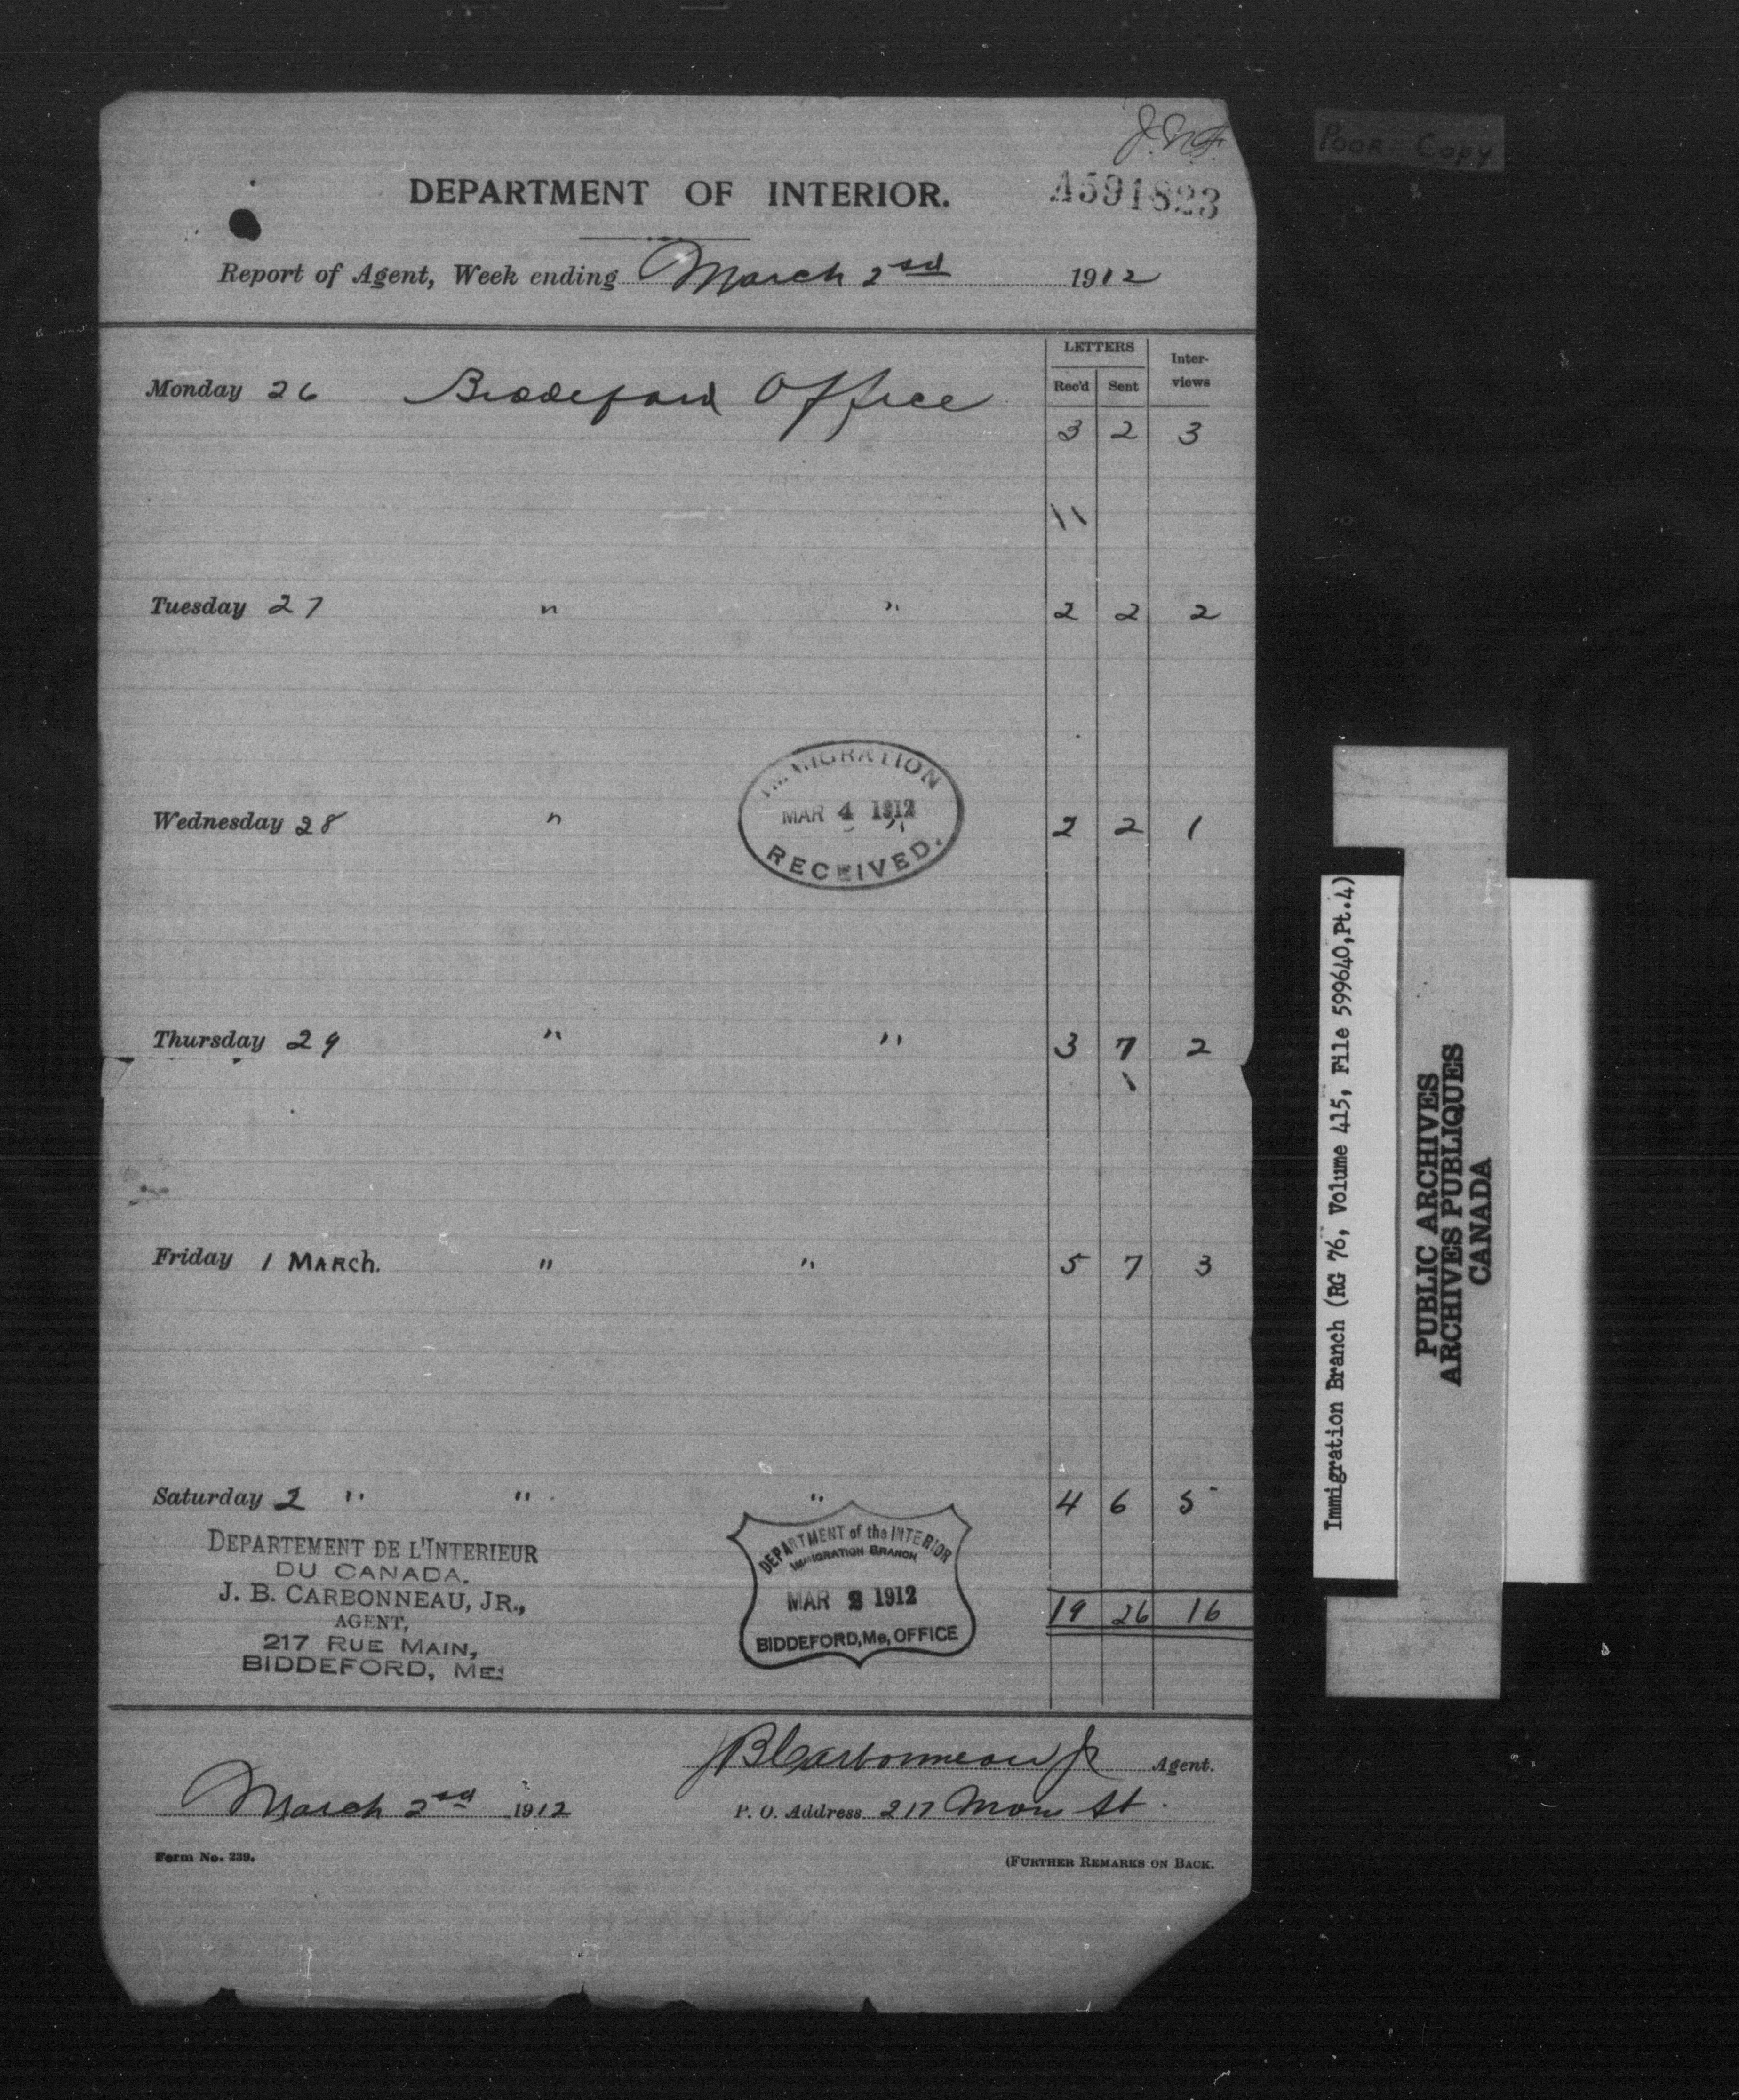 J.N.F.
POOR COPY
DEPARTMENT OF INTERIOR.
A591823
Report of Agent, Week ending March 2nd 1912
LETTERS
Inter-
views
Rec'd Sent
Monday 26 Biddeford Office
3 2 3
\\
Tuesday 27 " " 2 2 2
IMMIGRATION
MAR 4 1912
RECEIVED.
Wednesday 28 " " 2 2 1
Thursday 29 " " 3 7 2
\
Friday 1 MARCH. " " 5 7 3
Saturday 2 " " " 4 6 5
DEPARTEMENT DE L'INTERIEUR
DU CANADA.
J. B. CARBONNEAU, JR.,
AGENT,
217 RUE MAIN,
BIDDEFORD, ME.
DEPARTMENT of the INTERIOR
IMMIGRATION BRANCH
MAR 2 1912
BIDDEFORD, Me, OFFICE
19 26 16
JB Carbonneau Jr Agent.
March 2nd 1912
P. O. Address 217 Main St.
Form No. 239.
(FURTHER REMARKS ON BACK.
Immigration Branch (RG 76, Volume 415, File 599640,Pt.4)
PUBLIC ARCHIVES
ARCHIVES PUBLIQUES
CANADA